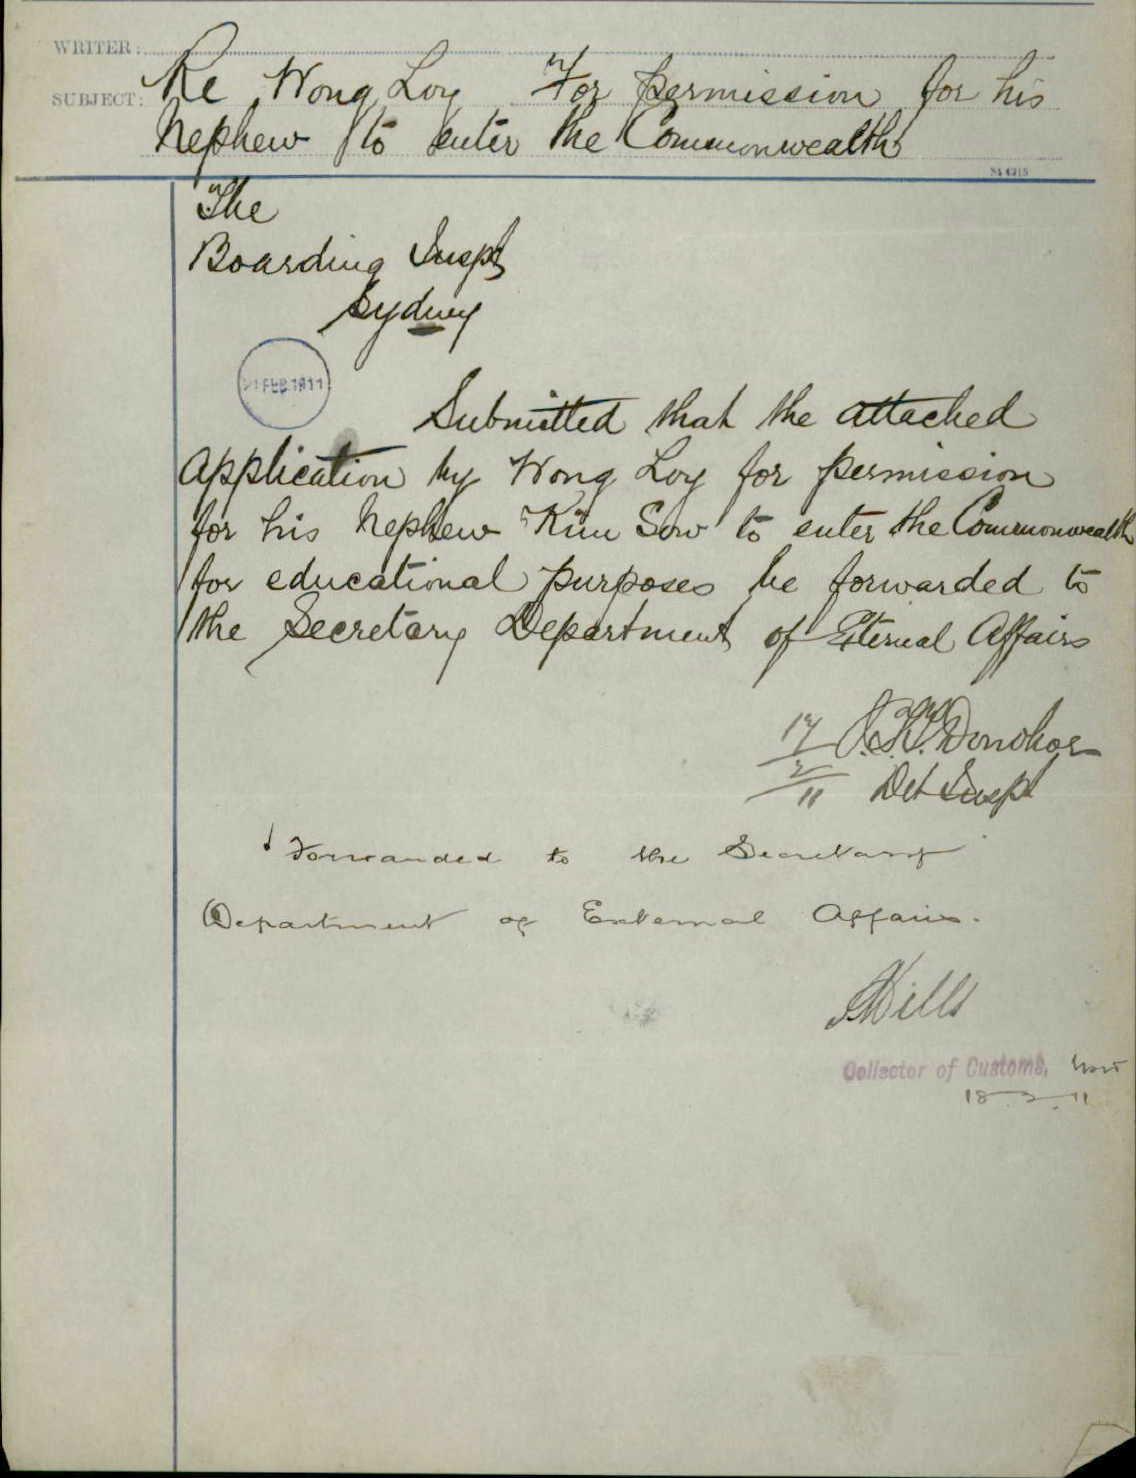 WRITER:
SUBJECT: Re Wong Loy For permission for his
Nephew to enter the Commonwealth
The
Boarding Inspr
Sydney
FEB. 1911
Submitted that the attached
application by Wong Loy for permission
for his Nephew "Kim Sow" to enter the Commonwealth
for educational purposes be forwarded to
the Secretary Department of External Affairs
17/2/11 Donohoe
Det Inspr
Forwarded to the Secretary
Department of External Affairs.
Mills
Collector of Customs, NSW
18.2.11